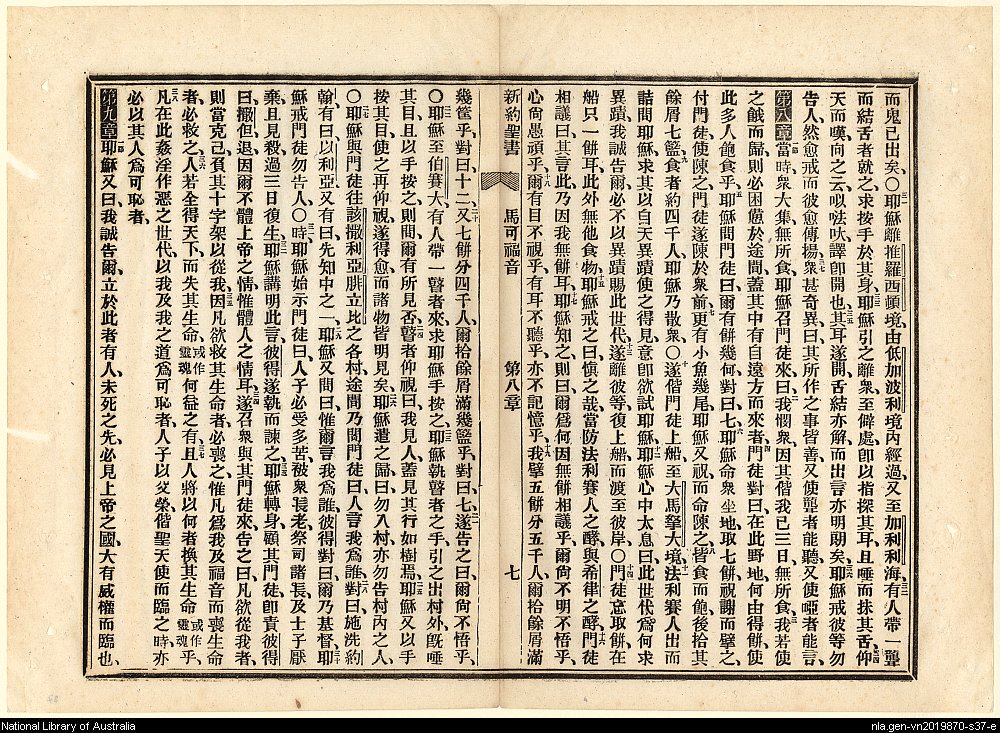 而鬼已出矣、〇耶穌離推羅西頓境、由低加波利境內經過、又至加利利海、有人帶一聾
而結舌者就之、求按手於其身、耶穌引之離衆、至僻處、卽以指探其耳、且唾而抹其舌、仰
天而嘆、向之云、以法大、譯卽開也、其耳遂開、舌結亦解、而出言亦明朗矣、耶穌戒彼等勿
告人、然愈戒而彼愈傳揚、衆甚奇異、曰、其所作之事皆善、又使聾者能聽、又使啞者能言、
第八章 當時、衆大集、無所食、耶穌召門徒來曰、我憫衆、因其偕我已三日、無所食、我若使
之餓而歸、則必困憊於途間、蓋其中有自遠方而來者、門徒對曰、在此野地、何由得餅、使
此多人飽食乎、耶穌問門徒曰、爾有餅幾何、對曰、七、耶穌命衆坐地、取七餅祝謝而擘之、
付門徒使陳之、門徒遂陳於衆前、更有小魚幾尾、耶穌又祝而命陳之、皆食而飽、後拾其
餘屑七籃、食者約四千人、耶穌乃散衆、〇遂偕門徒上船、至大馬拏大境、法利賽人出而
詰問耶穌、求其以自天異蹟使之得見、意卽欲試耶穌、耶穌心中太息曰、此世代爲何求
異蹟、我誠告爾、必不以異蹟賜此世代、遂離彼等、復上船而渡至彼岸、〇門徒忘取餅、在
船只一餅耳、此外無他食物、耶穌戒之曰、愼之哉、當防法利賽人之酵、與希律之酵、門徒
相議曰、其言此、乃因我無餅耳、耶穌知之、則曰、爾爲何因無餅相議乎、爾尙不明不悟乎、
心尙愚頑乎、爾有目不視乎、有耳不聽乎、亦不記憶乎、我擘五餅分五千人、爾拾餘屑滿
新約聖書 馬可福音 第八章 七
幾筐乎、對曰、十二、又七餅分四千人、爾拾餘屑滿幾籃乎、對曰、七、遂告之曰、爾尙不悟乎、
〇耶穌至伯賽大、有人帶一瞽者來、求耶穌手按之、耶穌執瞽者之手、引之出村外、旣唾
其目、且以手按之、則問爾有所見否、瞽者仰視曰、我見人、蓋見其行如樹焉、耶穌又以手
按其目、使之再仰視、遂得愈、而諸物皆明見矣、耶穌遣之歸曰、勿入村、亦勿告村內之人、
〇耶穌與門徒往該撒利亞腓立比之各村、途間乃問門徒曰、人言我爲誰、對曰、施洗約
翰、有曰以利亞、又有曰先知中之一、耶穌又問曰、惟爾言我爲誰、彼得對曰、爾乃基督、耶
穌戒門徒勿告人、〇時耶穌始示門徒曰、人子必受多苦、被衆長老祭司諸長及士子厭
棄、且見殺、過三日復生、耶穌講明此言、彼得遂執而諫之、耶穌轉身、顧其門徒、卽責彼得
曰、撒但退、因爾不體上帝之情、惟體人之情耳、遂召衆與其門徒來、告之曰、凡欲從我者、
則當克己負其十字架以從我、因凡欲救其生命者、必喪之、惟凡爲我及福音而喪生命
者、必救之、人若全得天下、而失其生命、或作靈魂何益之有、且人將以何者換其生命或作靈魂乎、
凡在此姦淫作惡之世代、以我及我之道爲可恥者、人子以父榮、偕聖天使而臨之時、亦
必以其人爲可恥者、
第九章 耶穌又曰、我誠告爾、立於此者、有人未死之先、必見上帝之國、大有威權而臨也、
National Library of Australia
nla.gen-vn2019870-s37-e